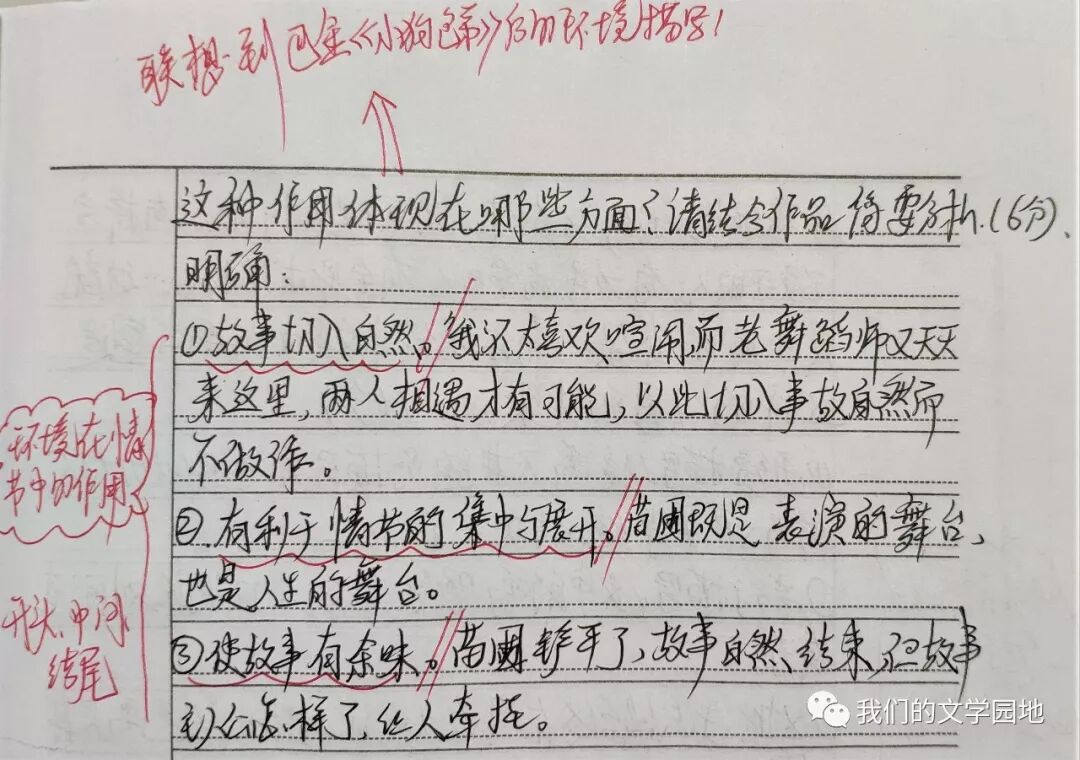 联想到巴金《小狗包弟》后的环境描写！
这种作用体现在哪些方面？请结合作品简要分析。(6分)、
明确：
①故事切入自然。我不太喜欢喧闹，而老舞蹈师又天天
来这里，两人相遇才有可能，以此切入事故自然而
不做作。
②.有利于情节的集中与展开。苗圃既是表演的舞台，
也是人生的舞台。
③使故事有余味。苗圃铲平了，故事自然结束，但故事
怎样了，让人牵挂。
环境在情
节中的作用
开头、中间、
结尾
我们的文学园地